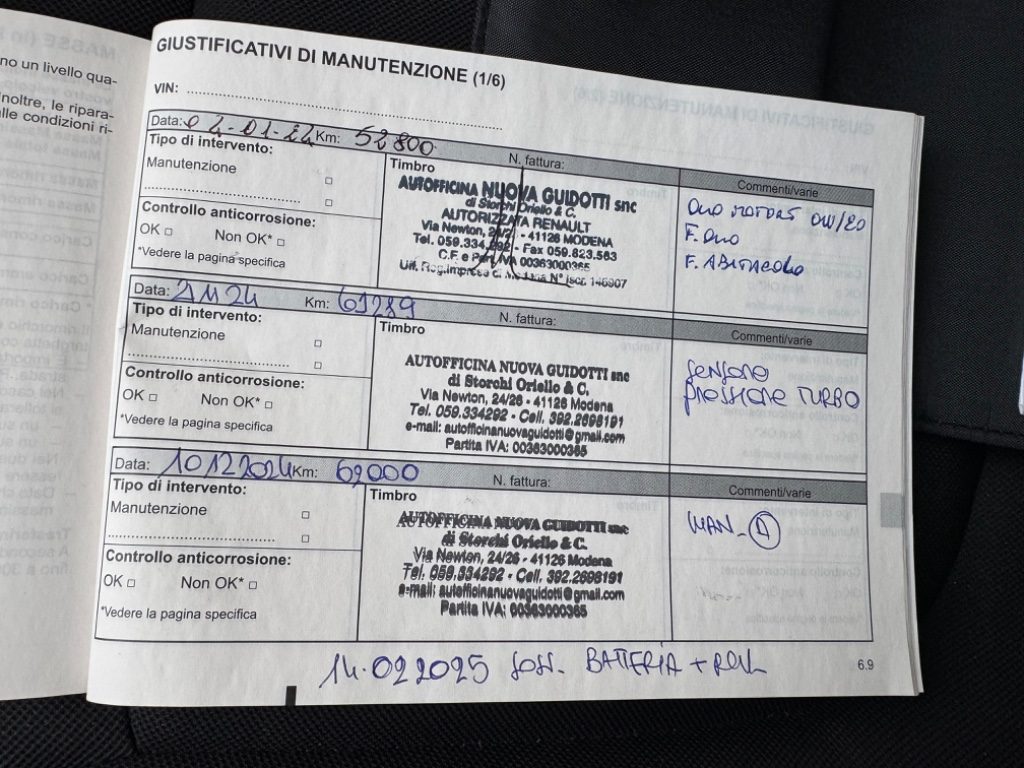 no un livello qua-
noltre, le ripara-
alle condizioni ri-
GIUSTIFICATIVI DI MANUTENZIONE (1/6)
VIN:
Data: 04-01-24 Km: 52800
N. fattura:
Tipo di intervento:
Manutenzione
Controllo anticorrosione:
OK Non OK*
*Vedere la pagina specifica
Timbro
AUTOFFICINA NUOVA GUIDOTTI snc
di Storchi Oriello & C.
AUTORIZZATA RENAULT
Via Newton, - 41126 MODENA
Tel. 059.334.292 - Fax 059.823.583
C.F. e Part. IVA 00363000365
Uff. Reg. Imprese di Modena N° Iscr. 146907
Commenti/varie
OLIO MOTORE 0W/20
F. OLIO
F. ABITACOLO
Data: Km:
N. fattura:
Tipo di intervento:
Manutenzione
Controllo anticorrosione:
OK Non OK*
*Vedere la pagina specifica
Timbro
AUTOFFICINA NUOVA GUIDOTTI snc
di Storchi Oriello & C.
Via Newton, 24/26 - 41126 Modena
Tel. 059.334292 - Cell. 392.2698191
e-mail: autofficinanuovaguidotti@gmail.com
Partita IVA: 00363000365
Commenti/varie
SENSORE
PRESSIONE TURBO
Data: 10122024 Km: 62000
N. fattura:
Tipo di intervento:
Manutenzione
Controllo anticorrosione:
OK Non OK*
*Vedere la pagina specifica
Timbro
AUTOFFICINA NUOVA GUIDOTTI snc
di Storchi Oriello & C.
Via Newton, 24/26 - 41126 Modena
Tel. 059.334292 - Cell. 392.2698191
e-mail: autofficinanuovaguidotti@gmail.com
Partita IVA: 00363000365
Commenti/varie
MAN_ A
14.022025 SOS. BATTERIA +
6.9